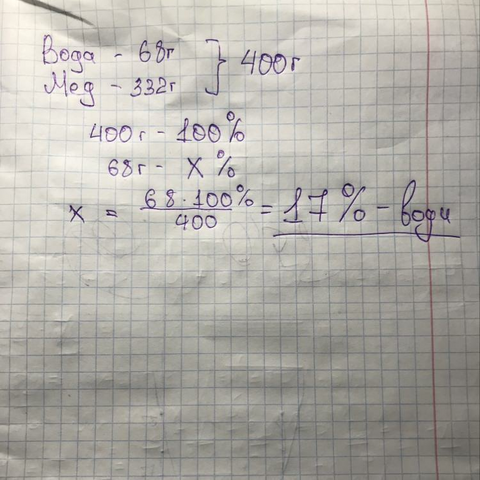 Вода - 68г } 400г
Мед - 332г
400г - 100%
68г - X %
x = 68·100% / 400 = 17% - води